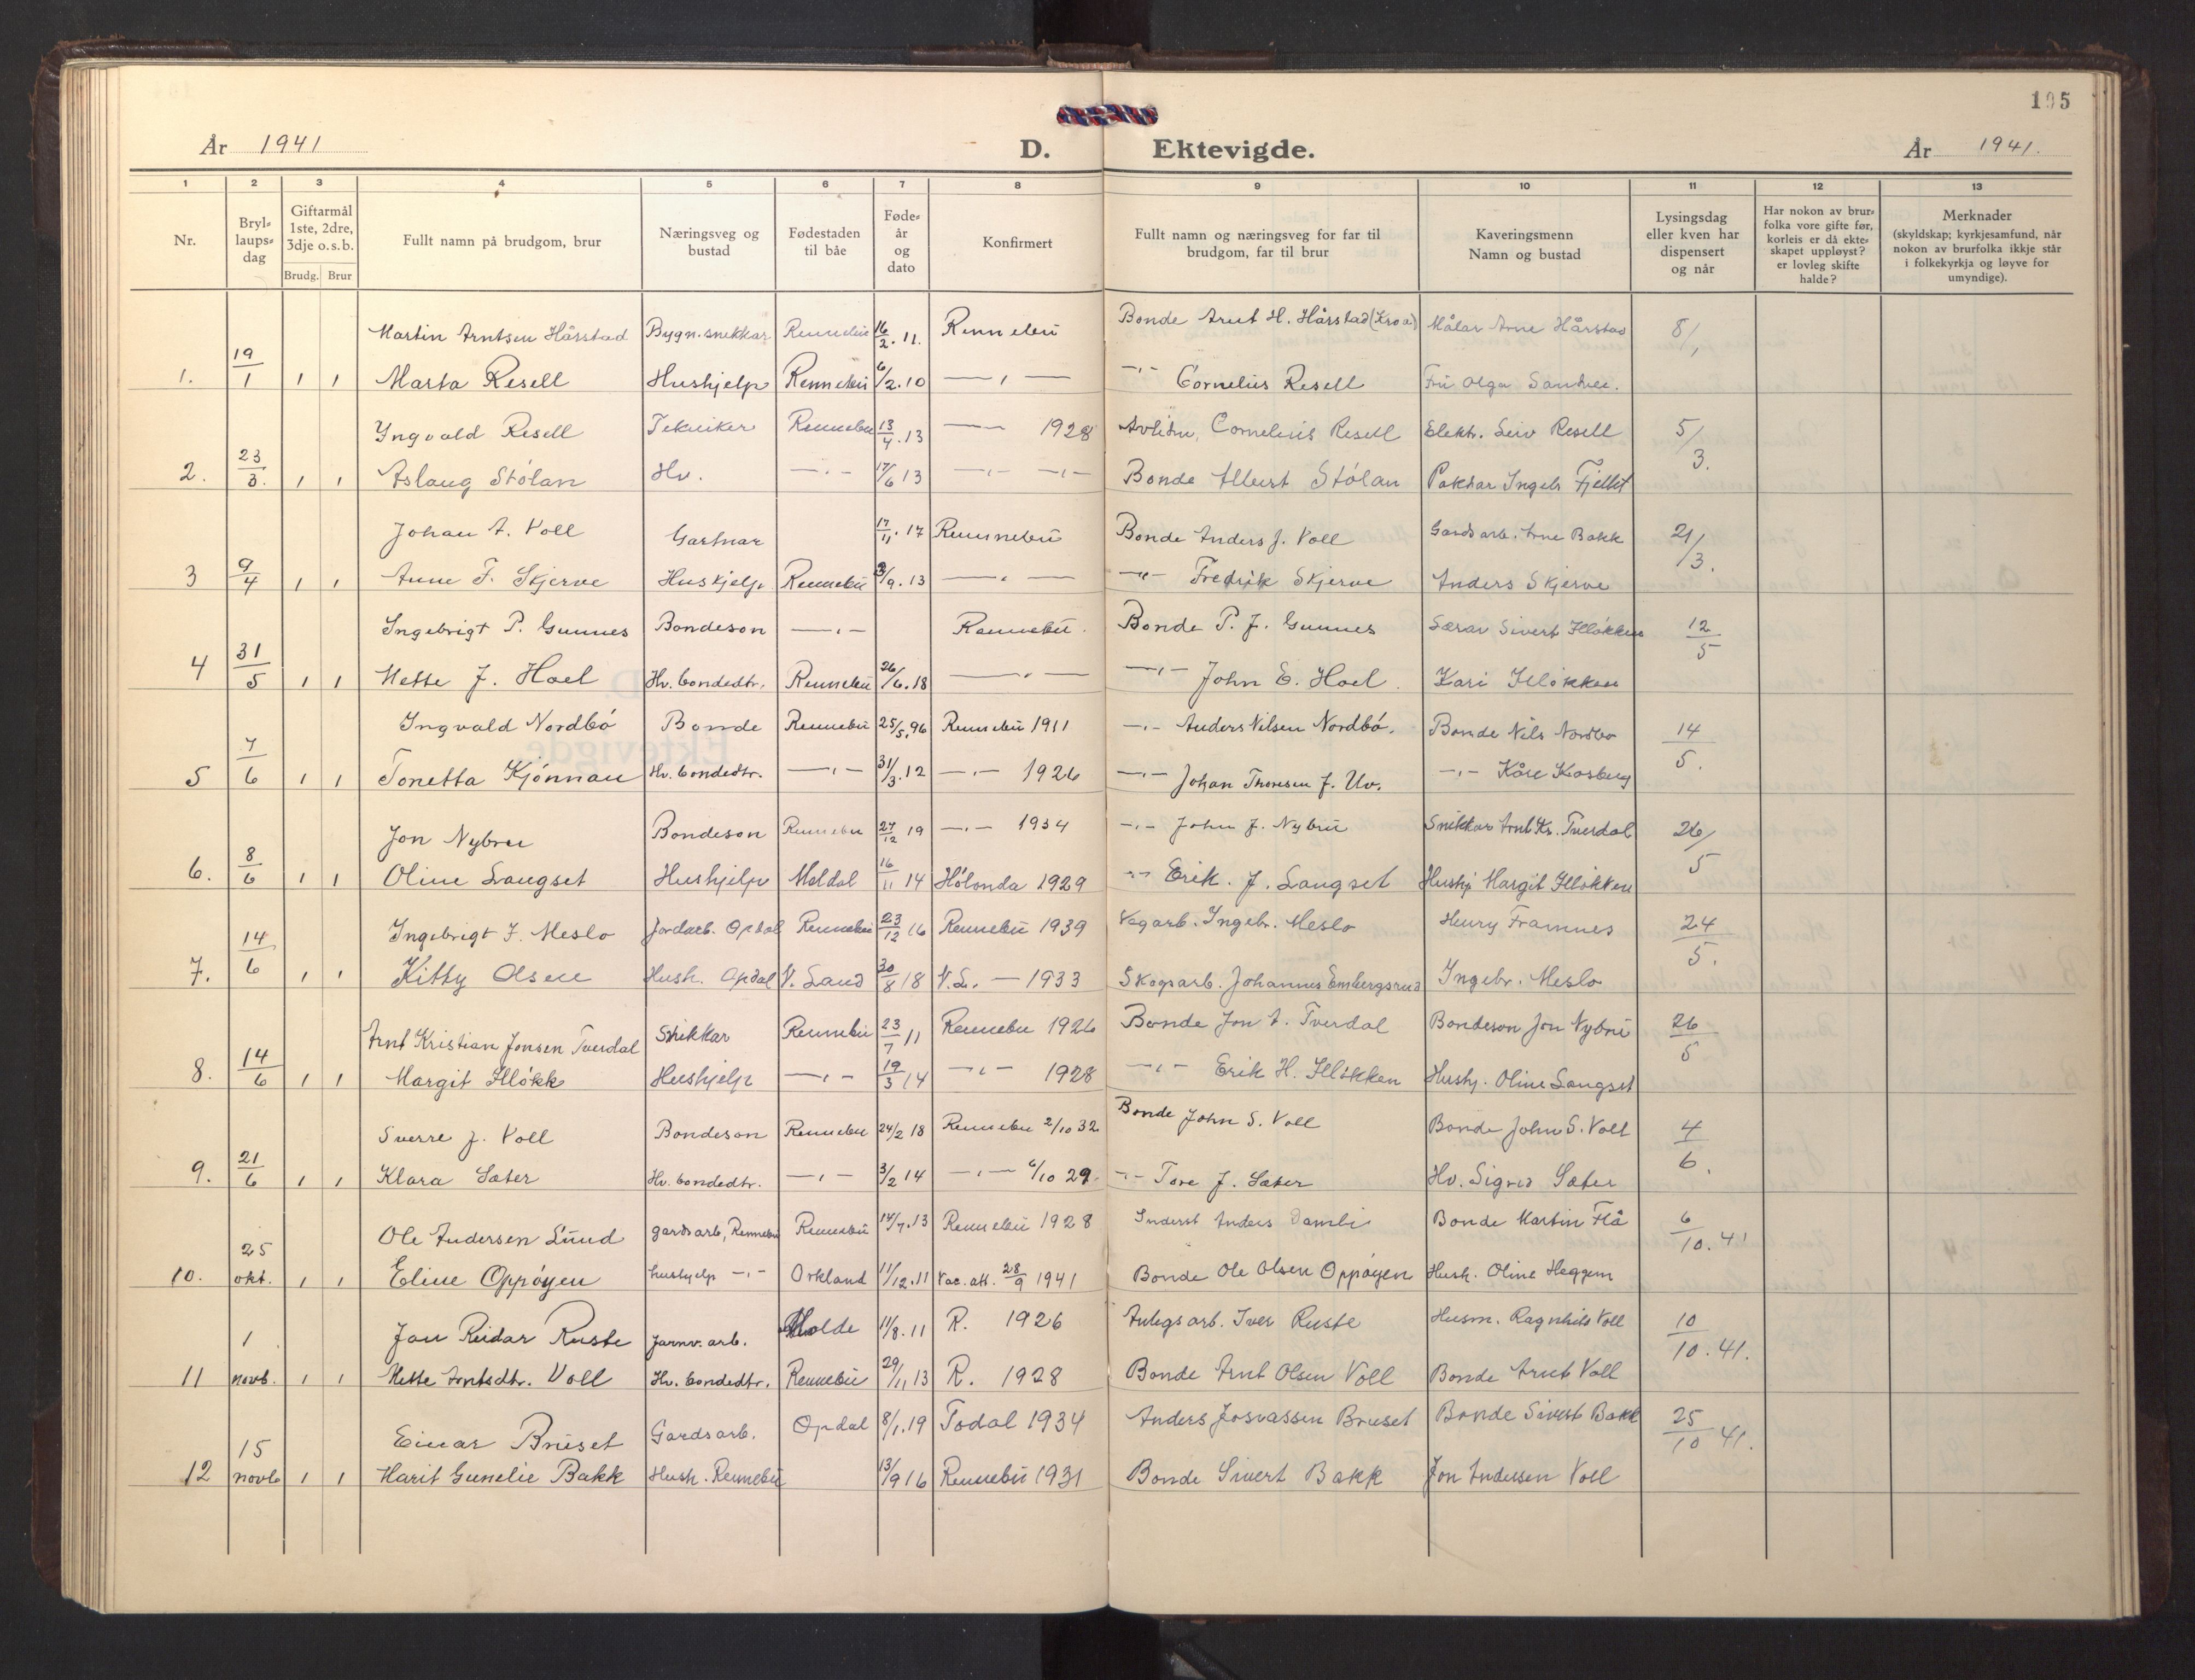 195
År 1941 D. Ektevigde. År 1941.
1 2 3 4 5 6 7 8 9 10 11 12 13
Nr.
Bryl-
laups-
dag
Giftarmål
1ste, 2dre,
3dje o.s.b.
Brudg. Brur
Fullt namn på brudgom, brur
Næringsveg og
bustad
Fødestaden
til båe
Føde-
år
og
dato
Konfirmert
Fullt namn og næringsveg for far til
brudgom, far til brur
Kaveringsmenn
Namn og bustad
Lysingsdag
eller kven har
dispensert
og når
Har nokon av brur-
folka vore gifte før,
korleis er då ekte-
skapet uppløyst?
er lovleg skifte
halde?
Merknader
(skyldskap; kyrkjesamfund, når
nokon av brurfolka ikkje står
i folkekyrkja og løyve for
umyndige).
Martin Arntsen Hårstad Bygn.snekkar Rennebu 16/2.11. Rennebu Bonde Arnt H. Hårstad (Kroa) Målar Arne Hårstad 8/1
1. 19/1 1 1 Marta Resell Hushjelp Rennebu 6/2.10 —〃— -〃- Cornelius Resell Fru Olga Sandnes.
Yngvald Resell Tekniker Rennebu 13/4.13 — 1928 Cornelius Resell Elektr. Resell 5/3.
2. 23/3. 1 1 Aslaug Stölan Hv. -〃- 17/6 13 -〃- -〃- Bonde Albert Stölan Ingebr Fjellet
Johan A. Voll Gartnar 17/11.17 Rennebu Bonde Anders J. Voll Gardsarb. Arne Bakk 21/3.
3 9/4 1 1 Anne F. Skjerve Huskjelp Rennebu /9.13 —〃— -〃- Fredrik Skjerve Anders Skjerve
Ingebrigt P. Gunnes Bondeson -〃- Rennebu. Bonde P. J. Gunnes Sivert Illökken 12/5
4 31/5 1 1 Mette J. Hoel Hv. bondedtr. Rennebu 26/6.18 —〃— -〃- John E. Hoel. Kari Illökken
Ingvald Nordbö Bonde Rennebu 25/5.96 Rennebu 1911 -〃- Anders Nilsen Nordbö. Bonde Nils Nordbo 14/5.
5 7/6 1 1 Tonetta Kjönnau Hv. bondedtr. -〃- 31/3.12 -〃- 1926 -〃- Johan Thoresen J. Uv. -〃- Kåre Kosberg
Jon Nybru Bondeson Rennebu 27/12 19 -〃- 1934 -〃- John J. Nybru Snikkar Arnt Kr. Tverdal 26/5
6. 8/6 1 1 Oline Langset Hushjelp Meldal 16/11 14 Hölonda 1929 -〃- Erik. J. Langset Hushj Margit Illökken
Ingebrigt J. Meslo Jordarb. Opdal Rennebu 23/12 16 Rennebu 1939 Vegarb. Ingebr. Meslo Henry Framnes 24/5.
7. 14/6 1 1 Kitty Olsen Hush. Opdal V. Land 30/8 18 V.L. — 1933 Skogsarb. Johannes Embergsrud Ingebr. Meslo
Arnt Kristian Jonsen Tverdal Snikkar Rennebu 23/7 11 Rennebu 1926 Bonde Jon A. Tverdal Bondeson Jon Nybru 26/5
8. 14/6 1 1 Margit Illökk Hushjelp -〃- 19/3 14 -〃- 1928 -〃- Erik H. Illökken Hushj. Oline Langset
Sverre J. Voll Bondeson Rennebu 24/2 18 Rennebu 2/10 32 Bonde John S. Voll Bonde John S. Voll 4/6.
9. 21/6 1 1 Klara Sæter Hv. bondedtr. -〃- 3/2 14 -〃- 6/10 29. -〃- Tore J. Sæter Hv. Sigrid Sæter
Ole Andersen Lund gardsarb, Rennebu Rennebu 14/7.13 Rennebu 1928 Inderst Anders Damli Bonde Martin Flå 6/10.41
10. 25 okt. 1 1 Eline Oppöyen hushjelp -〃- Orkland 11/12.11 Vac. att. 28/9 1941 Bonde Ole Olsen Oppöyen Hush. Oline Heggem
Jon Reidar Ruste Jarnv. arb. Molde 11/8.11 R. 1926 Anlegsarb. Iver Ruste Husm. Ragnhild Voll 10/10.41.
11 1 novb. 1 1 Mette Arntsdtr. Voll Hv. bondedtr. Rennebu 29/11 13 R. 1928 Bonde Arnt Olsen Voll Bonde Arnt Voll
Einar Bruset Gardsarb. Opdal 8/1.19 Todal 1934 Anders Bruset Bonde Sivert Bakk 25/10 41.
12 15 novb 1 1 Marit Gunelie Bakk Hush. Rennebu 13/9 16 Rennebu 1931 Bonde Sivert Bakk Jon Andersen Voll